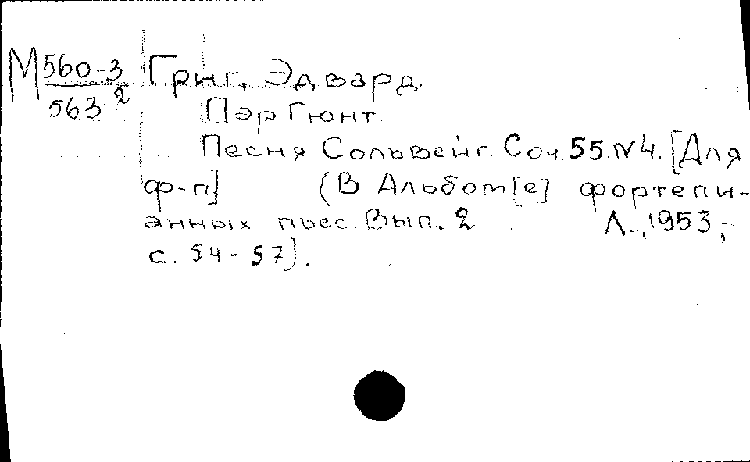 М 560-3 Григ, Эдвард.
563² Пэр Гюнт.
Песня Сольвейг. Соч. 55. №4. [Для
ф-п] (В Альбом[е] фортепи-
анных пьес. Вып. 2 Л., 1953,
с. 54-57).